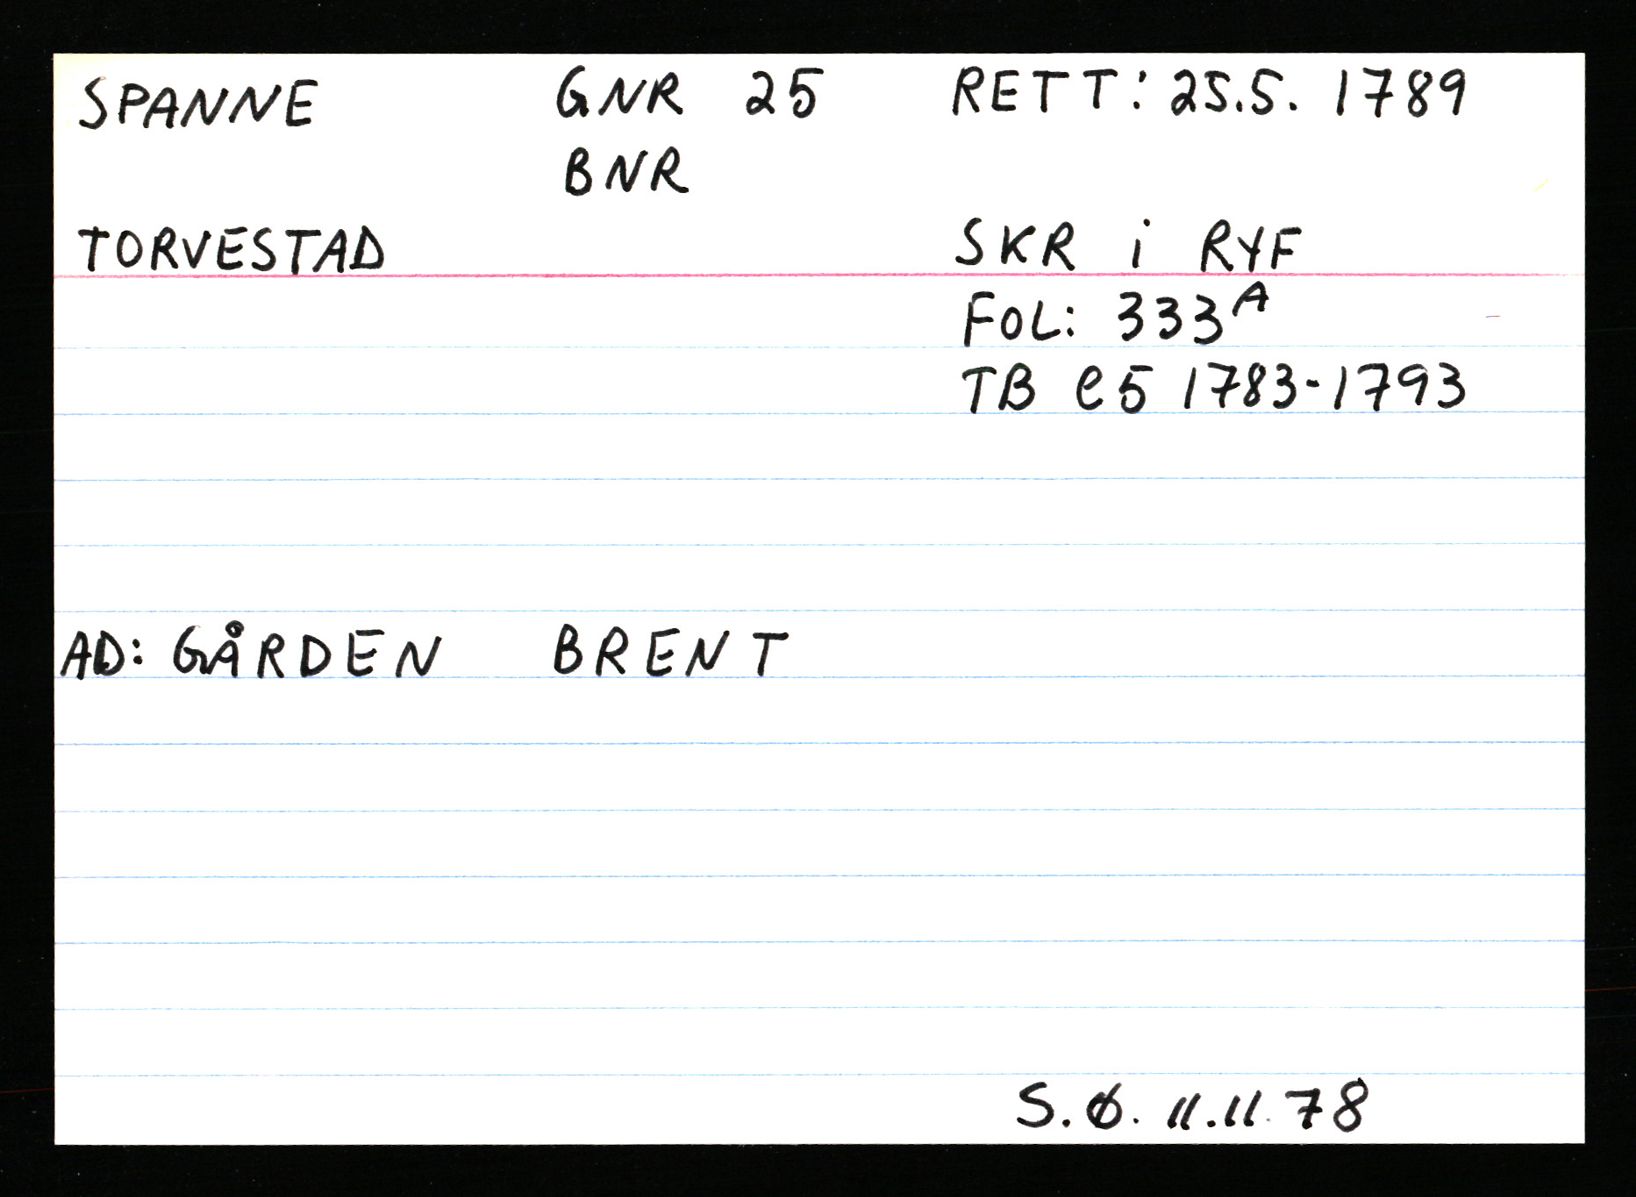 SPANNE GNR 25 RETT: 25.5. 1789
BNR
TORVESTAD SKR i RYF
FOL: 333A
TB e5 1783-1793
AD: GÅRDEN BRENT
S.Ø. 11.11.78